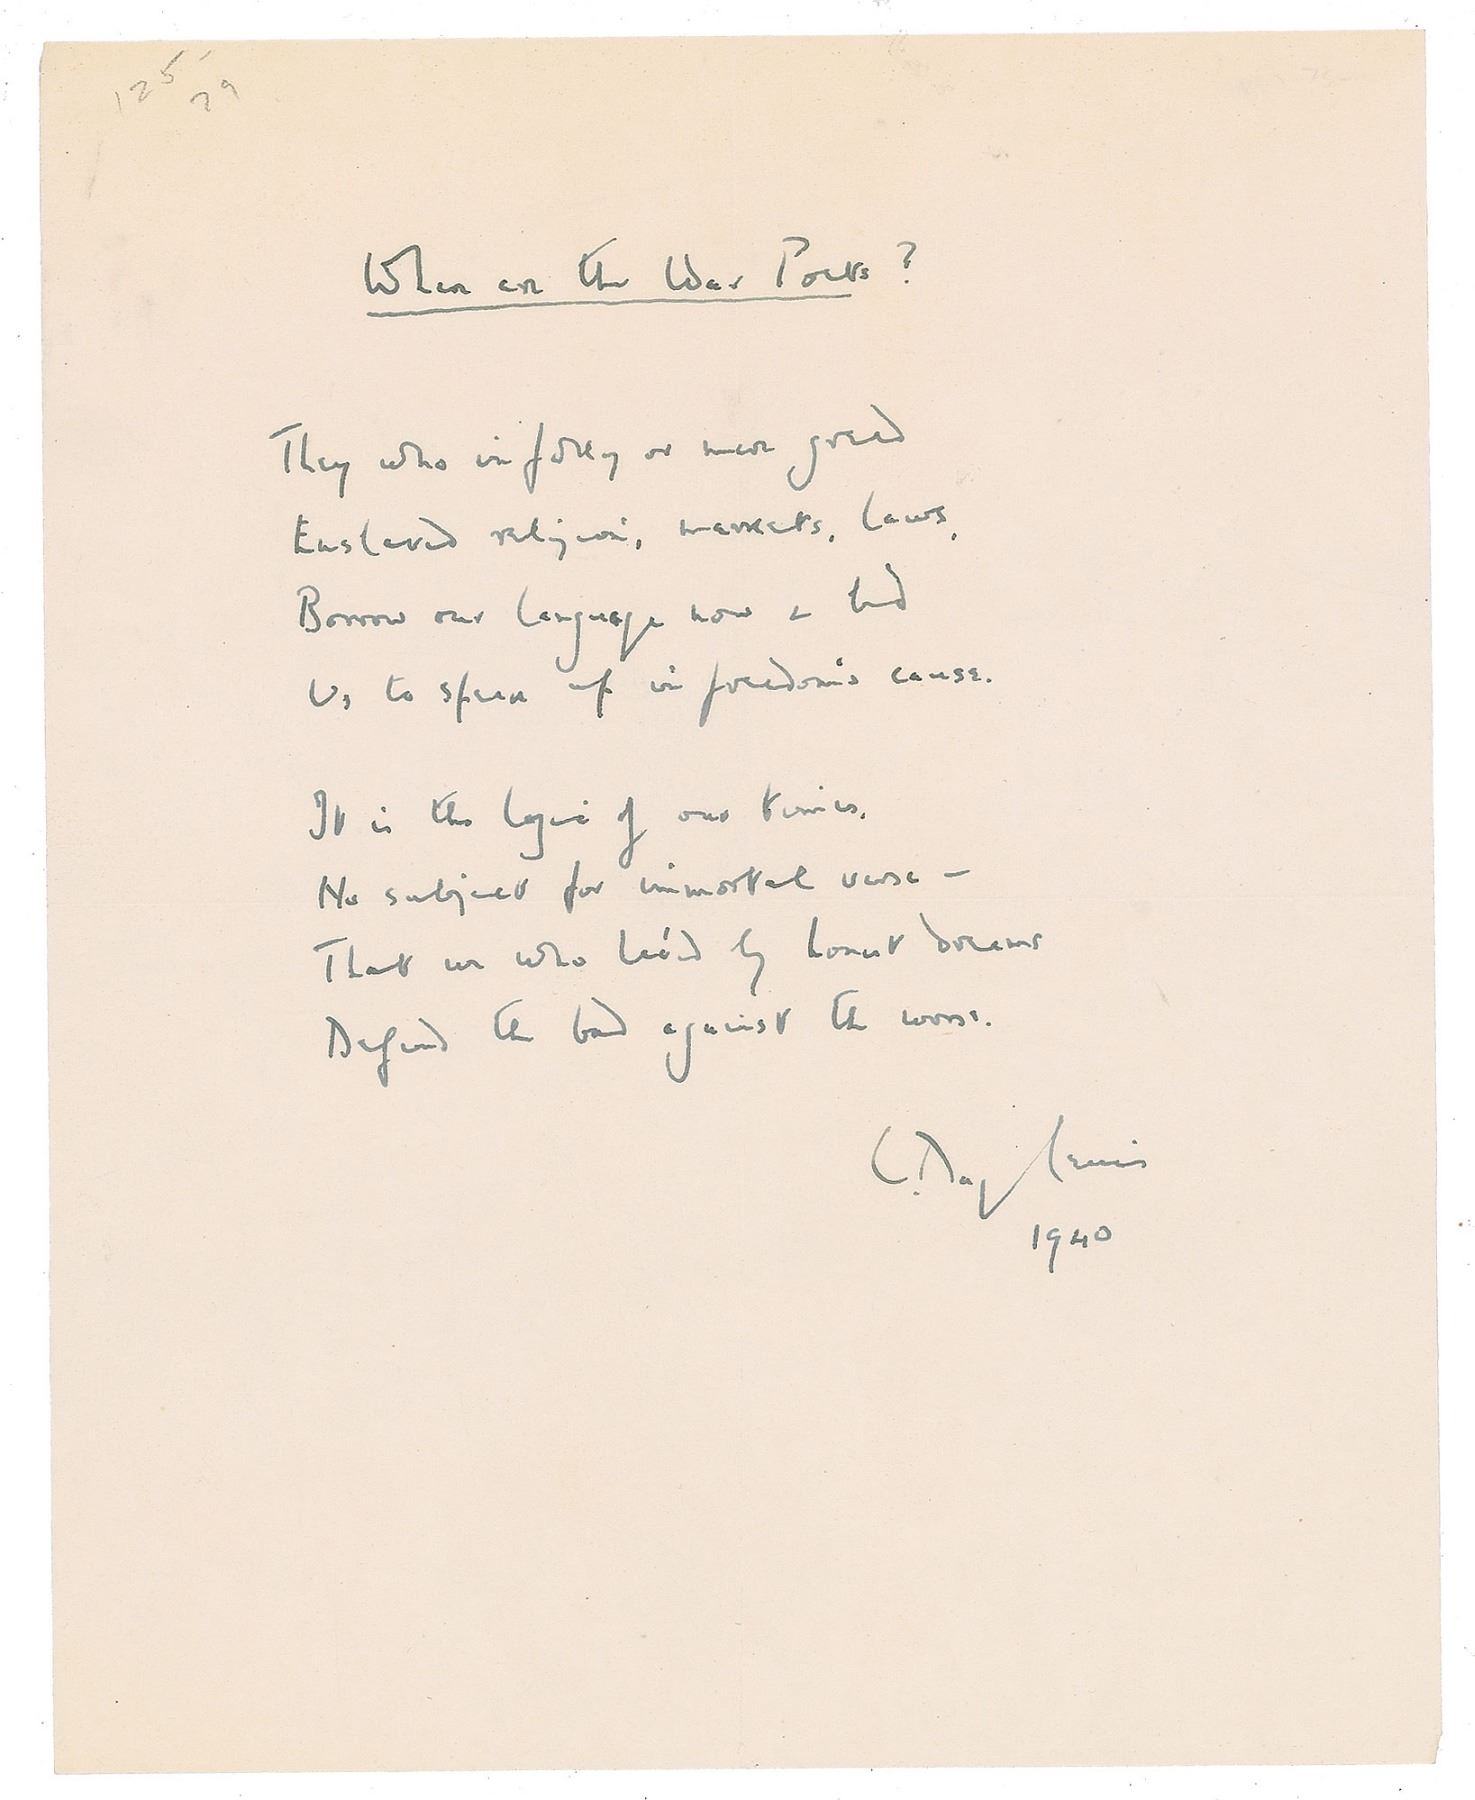 125/-
29
Where are the War Poets?
They who in folly or mere greed
Enslaved religion, markets, laws,
Borrow our language now & bid
Us to speak up in freedom's cause.
It is the logic of our times,
No subject for immortal verse —
That we who lived by honest dreams
Defend the bad against the worse.
C. Day Lewis
1940